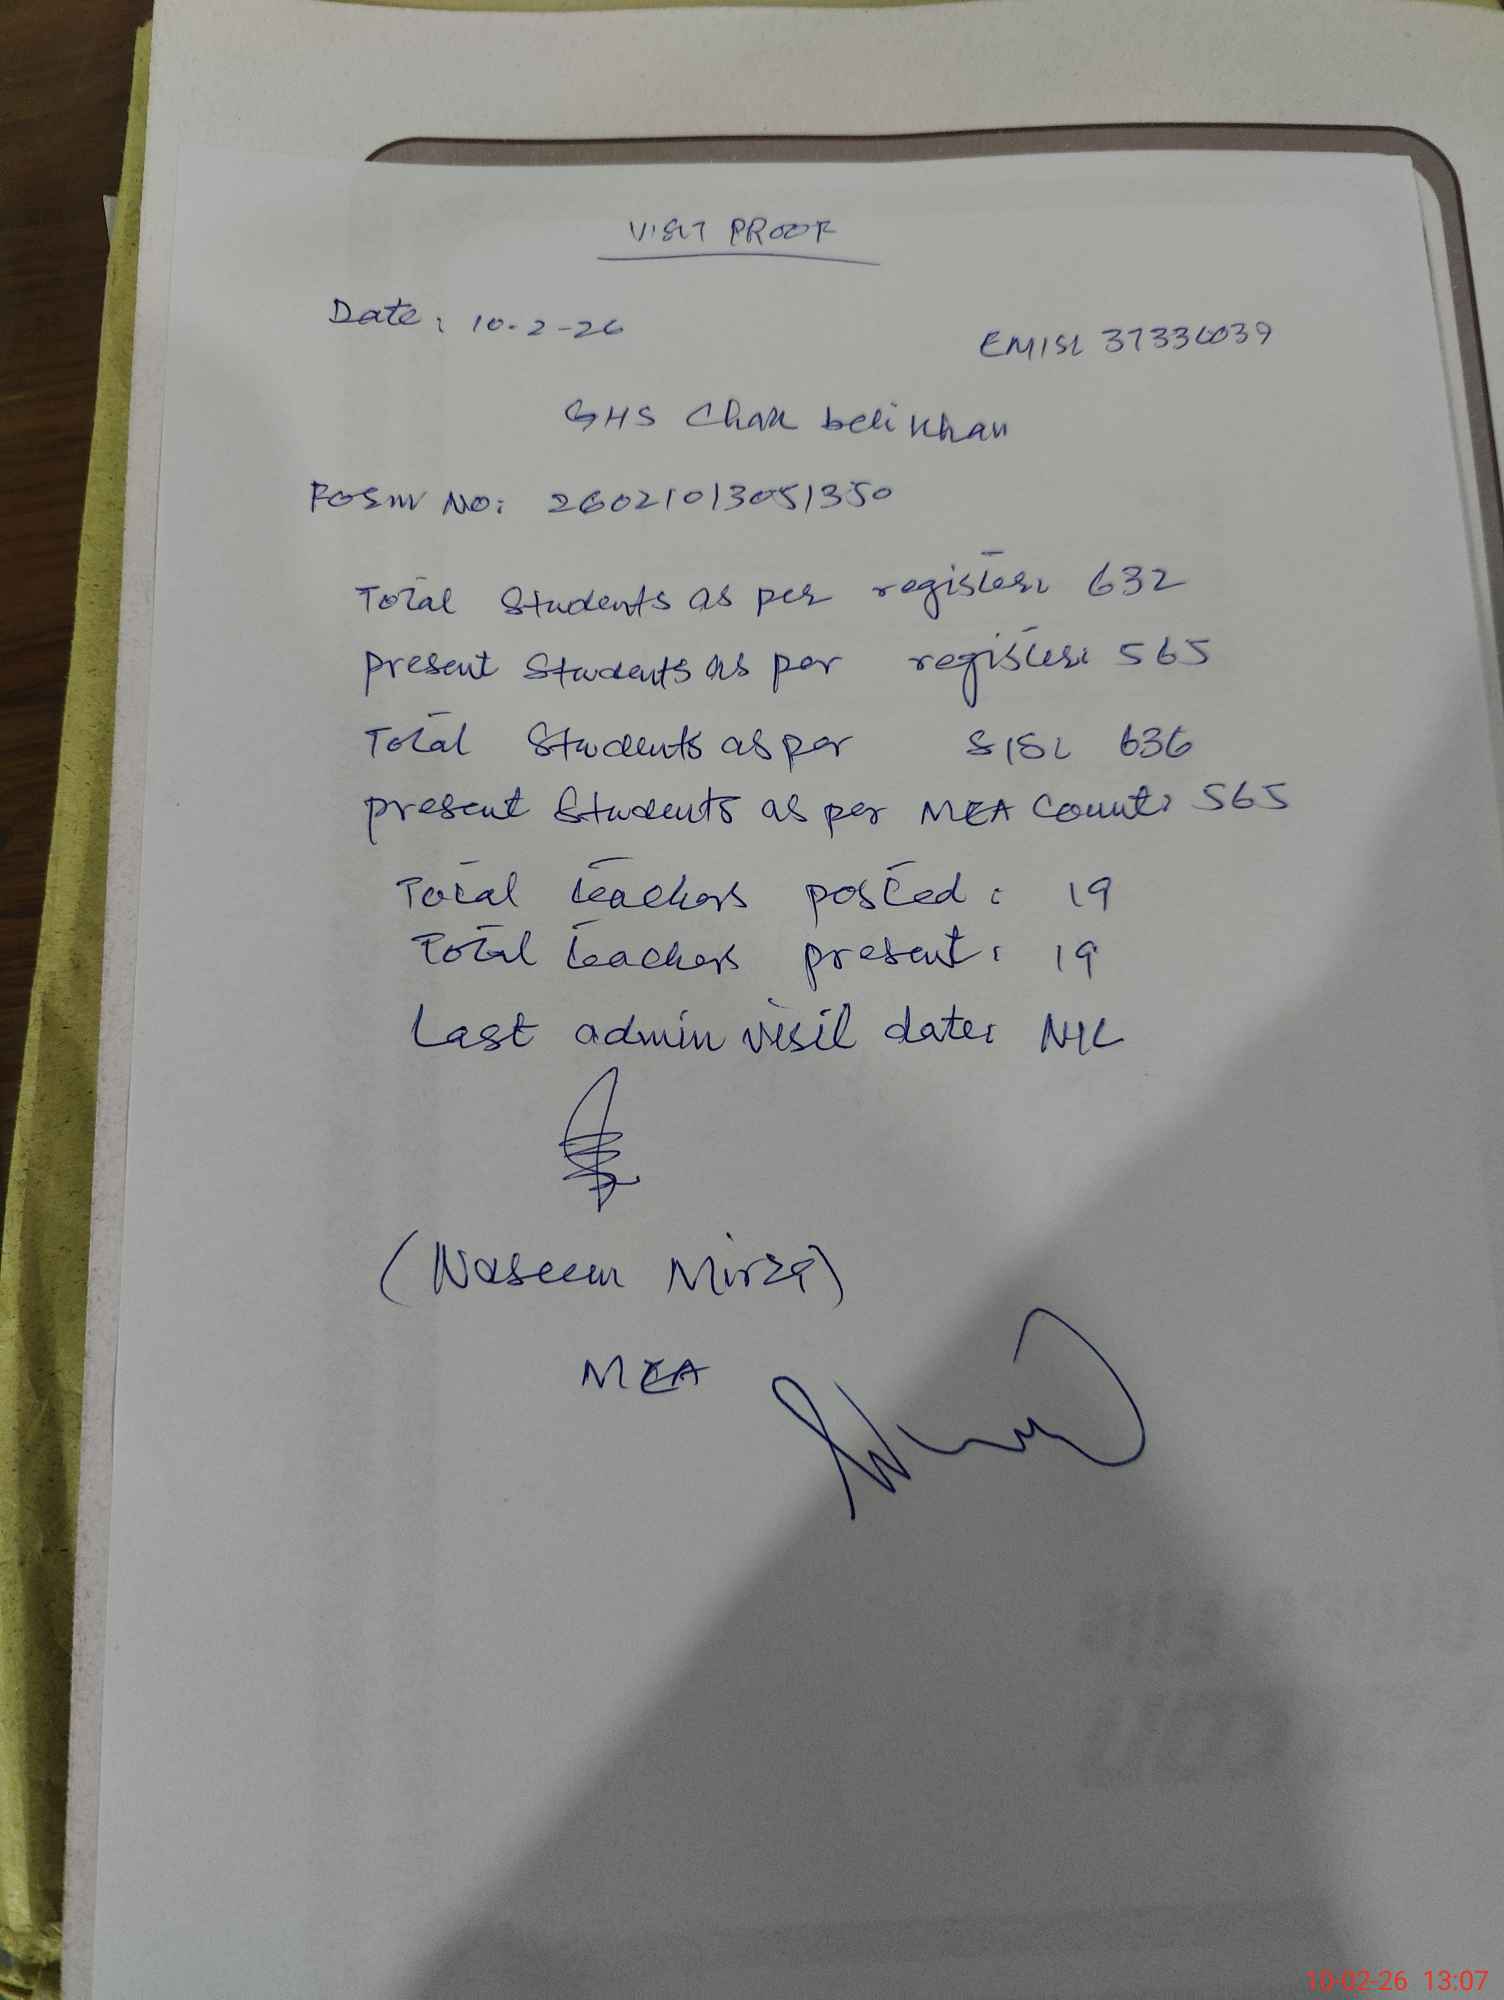 VISIT PROOF
Date: 10-2-26
EMIS: 37330039
GHS Chak beli Khan
Form No: 26021013051350
Total Students as per register: 632
present Students as per register: 565
Total Students as per SIS: 636
present Students as per MEA Count: 565
Total teachers posted: 19
Total teachers present: 19
Last admin visit date: NIL
(Naseem Mirza)
MEA
10-02-26 13:07